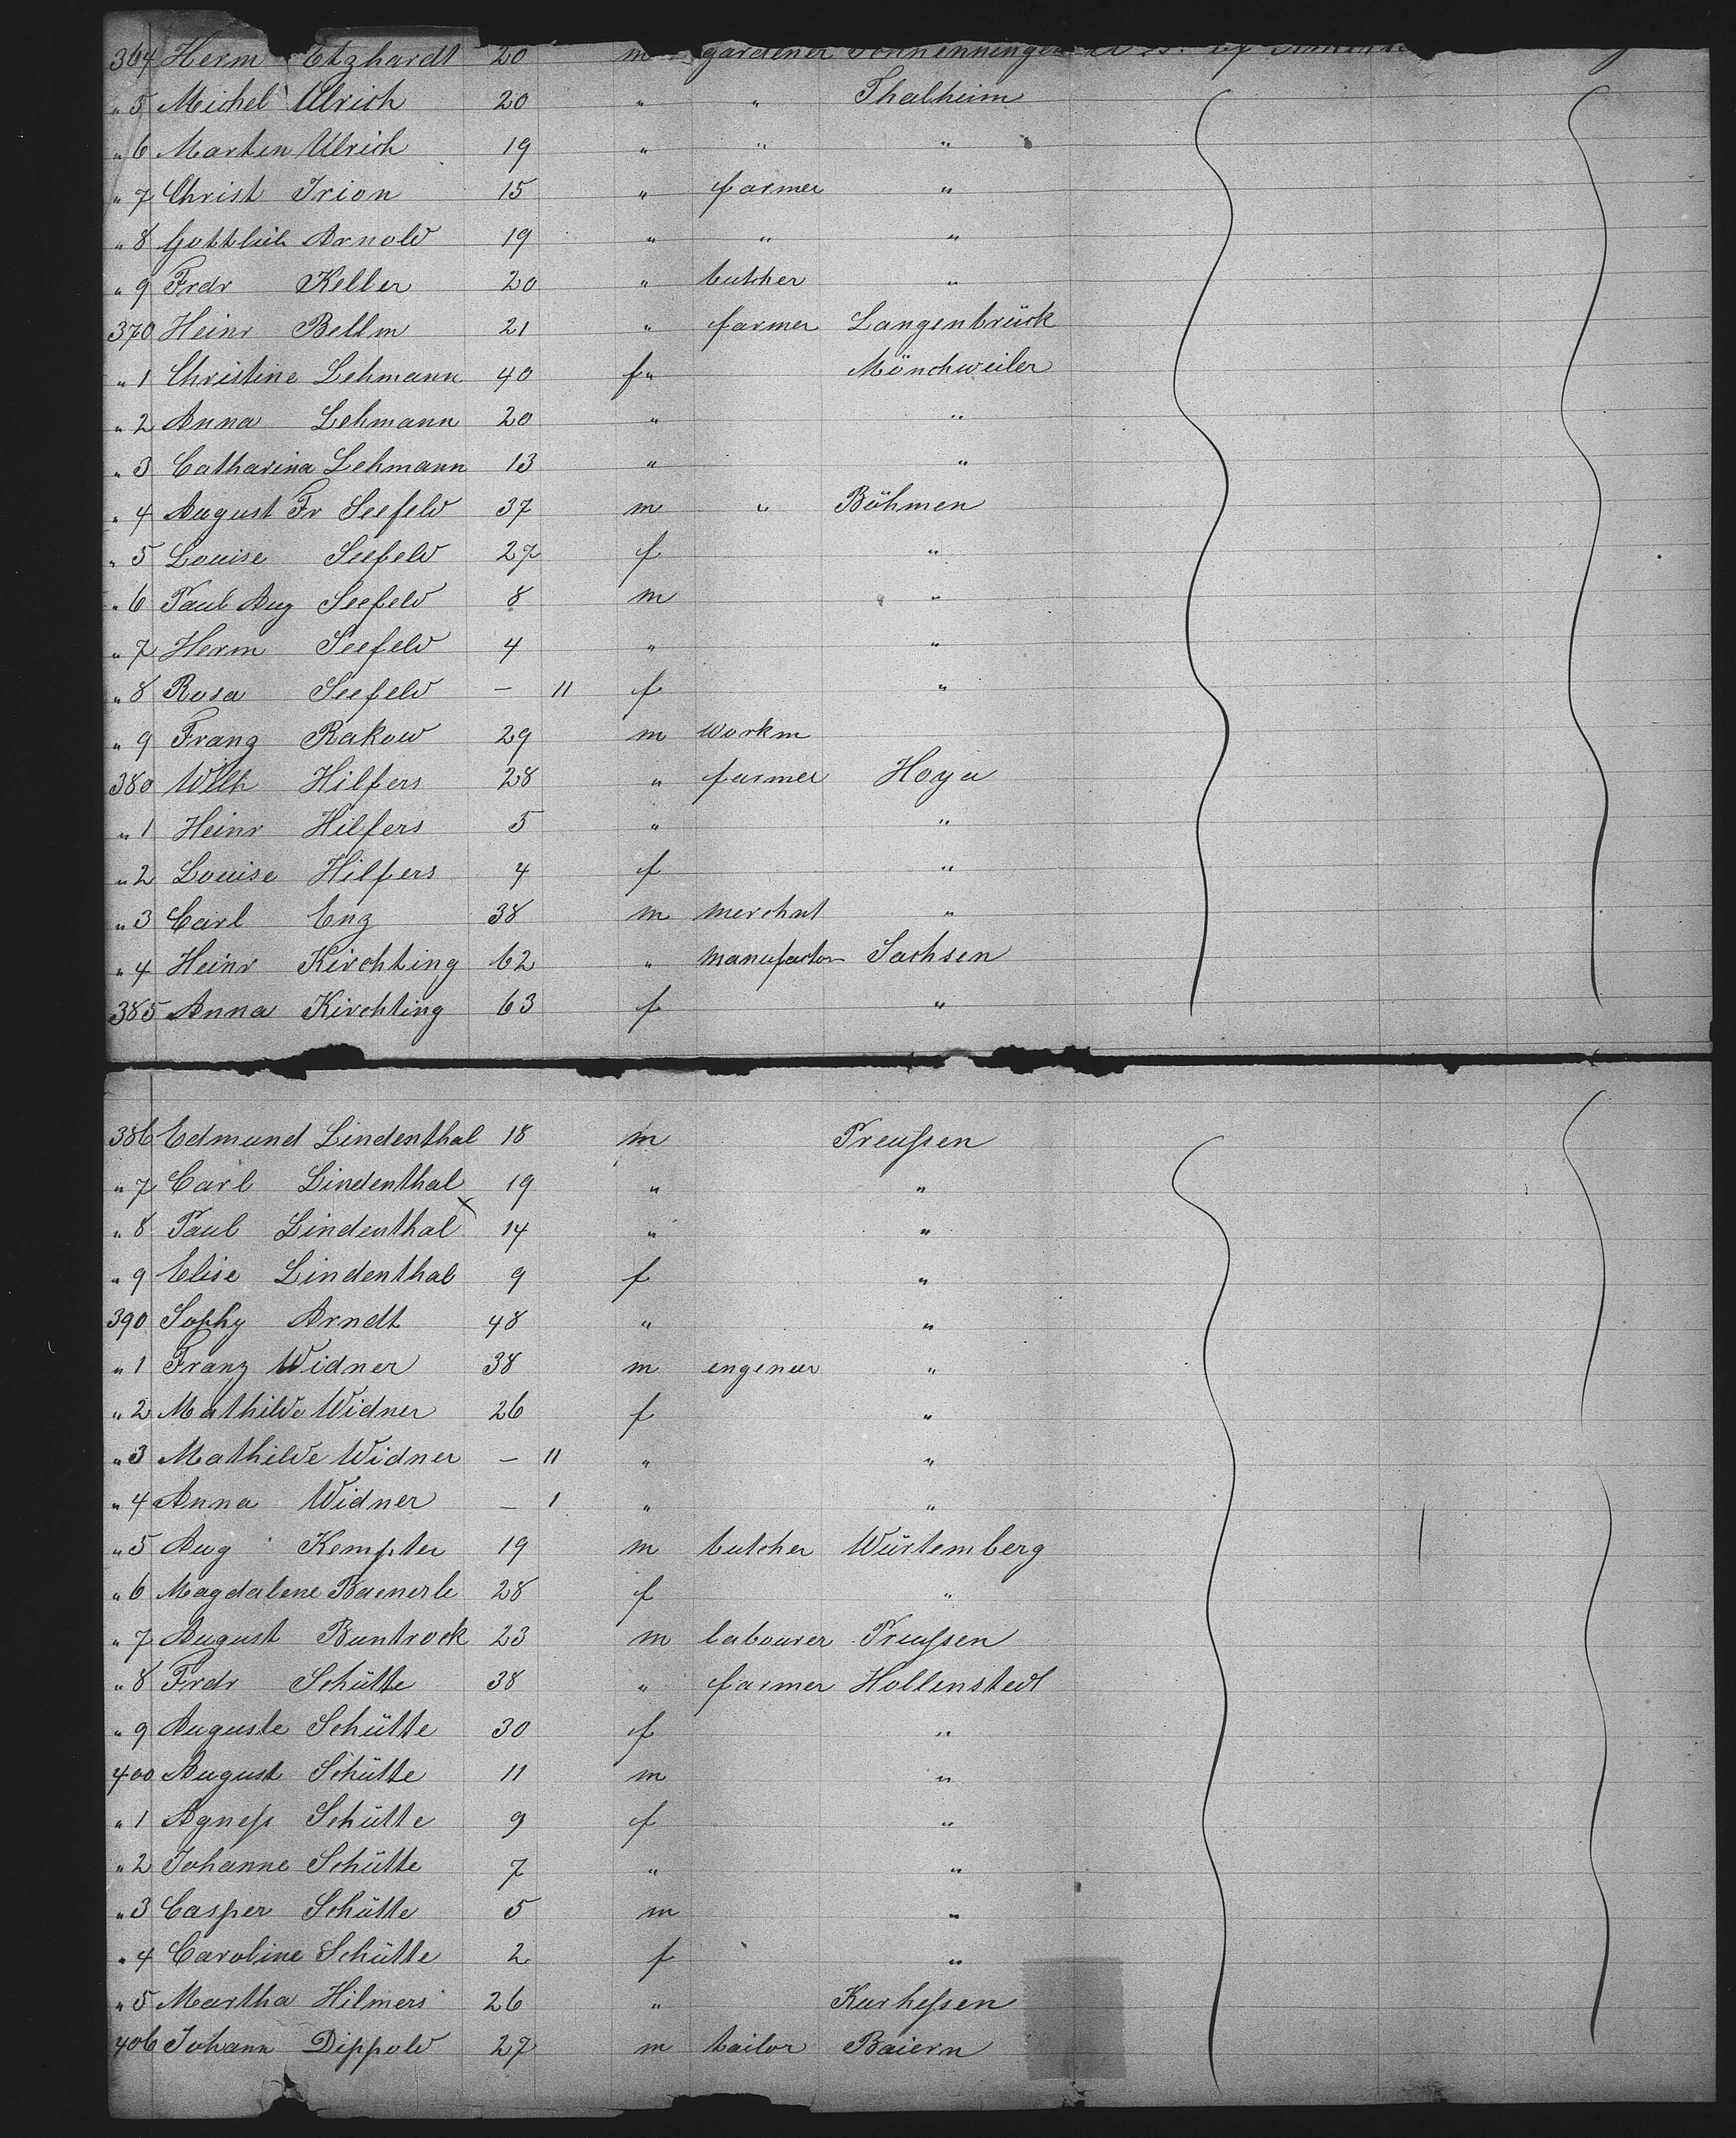 364 Herm Etzhardt 20 m gardener
" 5 Michel Ulrich 20 " " Thalheim
" 6 Marten Ulrich 19 " " "
" 7 Christ Irion 15 " farmer "
" 8 Gottlieb Arnold 19 " " "
" 9 Frdr Keller 20 " butcher "
370 Heinr Bellm 21 " farmer Langenbrück
" 1 Christine Lehmann 40 f " Mönchweiler
" 2 Anna Lehmann 20 " "
" 3 Catharina Lehmann 13 " "
" 4 August Fr Seefeld 37 m " Böhmen
" 5 Louise Seefeld 27 f "
" 6 Paul Aug Seefeld 8 m "
" 7 Herm Seefeld 4 " "
" 8 Rosa Seefeld – 11 f "
" 9 Franz Rakow 29 m workm
380 Wilh Hilfers 28 " farmer Hoya
" 1 Heinr Hilfers 5 " "
" 2 Louise Hilfers 4 f "
" 3 Carl Enz 38 m merchnt "
" 4 Heinr Kirchting 62 " manufactor Sachsen
385 Anna Kirchting 63 f "
386 Edmund Lindenthal 18 m Preußen
" 7 Carl Lindenthal 19 " "
" 8 Paul Lindenthal x 14 " "
" 9 Elise Lindenthal 9 f "
390 Sophy Arndt 48 " "
" 1 Franz Widner 38 m engeneer "
" 2 Mathilde Widner 26 f "
" 3 Mathilde Widner – 11 " "
" 4 Anna Widner – 1 " "
" 5 Aug Kempter 19 m butcher Würtemberg
" 6 Magdalene 28 f "
" 7 August Buntrock 23 m labourer Preußen
" 8 Frdr Schütte 38 " farmer Hollenstedt
" 9 Auguste Schütte 30 f "
400 August Schütte 11 m "
" 1 Agneß Schütte 9 f "
" 2 Johanne Schütte 7 " "
" 3 Casper Schütte 5 m "
" 4 Caroline Schütte 2 f "
" 5 Martha Hilmers 26 " Kurheßen
406 Johann Dippold 27 m tailor Baiern